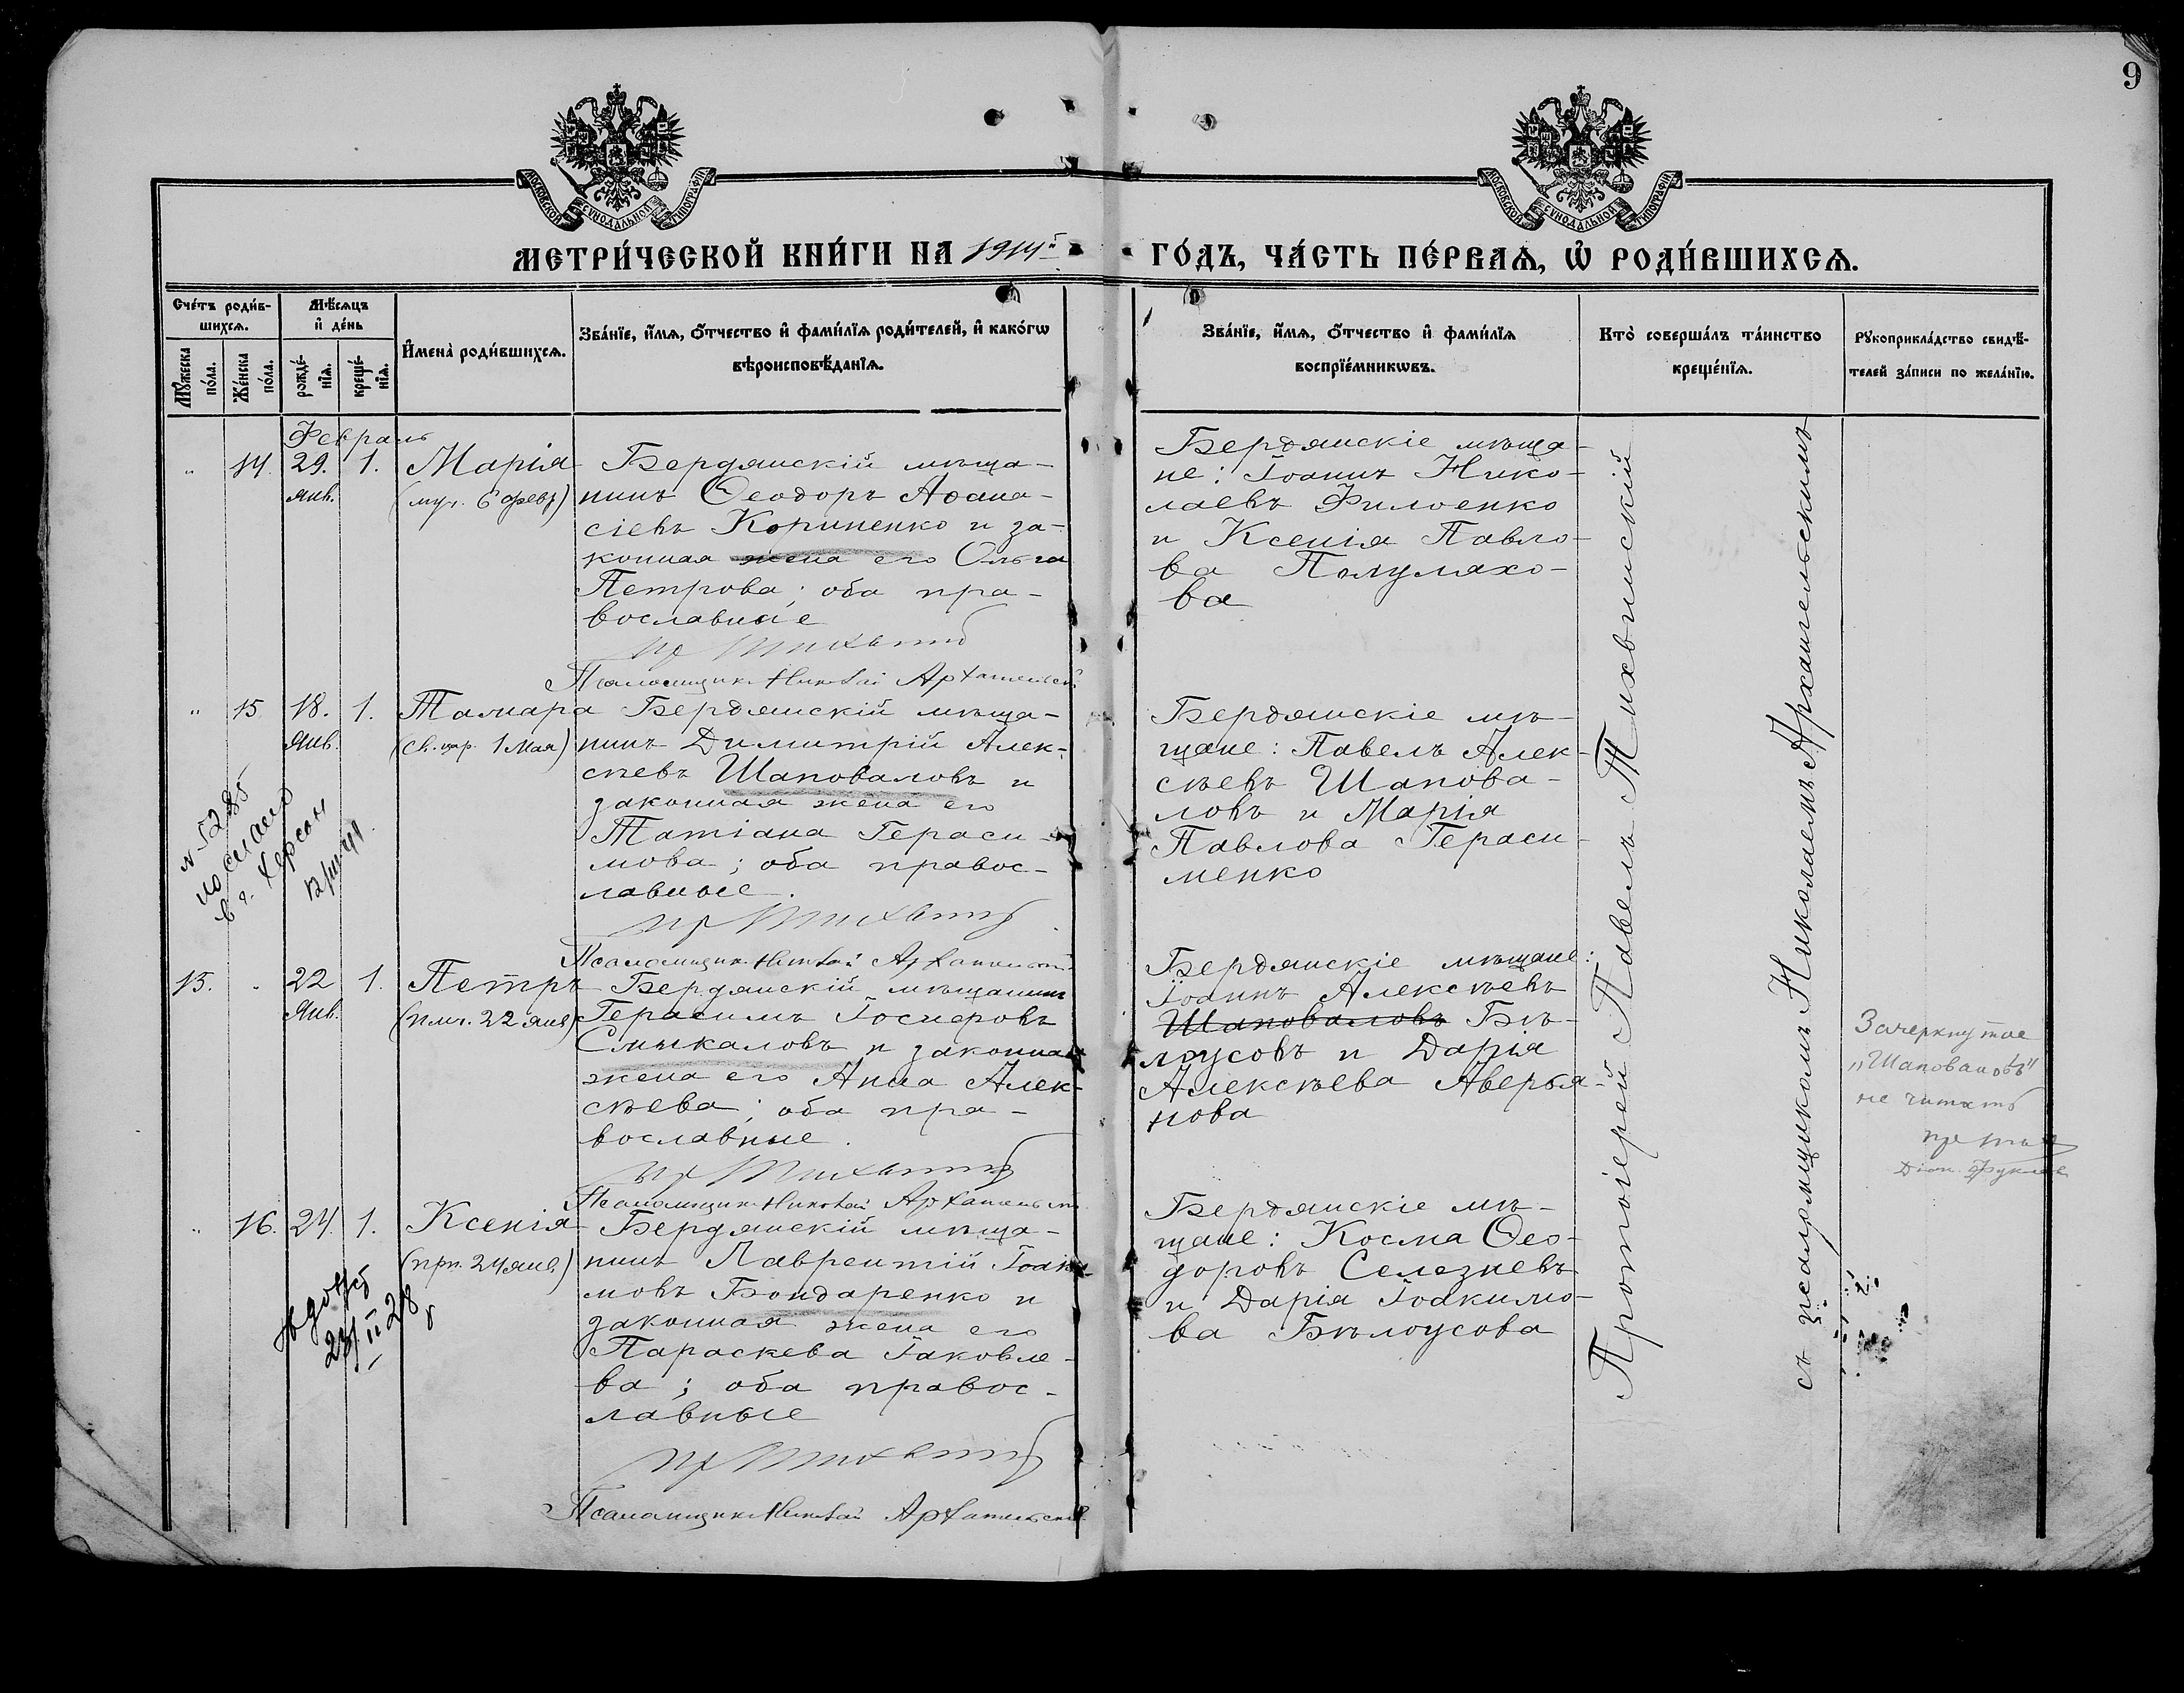 9
МОСКОВСКОЙ СѴНОДАЛЬНОЙ ТИПОГРАФІИ
МОСКОВСКОЙ СѴНОДАЛЬНОЙ ТИПОГРАФІИ
МЕТРИ́ЧЕСКОЙ КНИ́ГИ НА 1914й
ГО́ДЪ, ЧА́СТЬ ПЕ́РВАѦ, Ѡ҆ РОДИ́ВШИХСѦ.
Сче́тъ роди́в-
шихсѧ.
Мꙋ́жеска по́ла.
Же́нска по́ла.
Мѣ́сѧцъ
и҆ де́нь
рожде́-
нїѧ.
креще́-
нїѧ.
И҆мена̀ роди́вшихсѧ.
Зва́нїе, и҆́мѧ, ѻ҆́тчество и҆ фами́лїѧ роди́телей, и҆ како́гѡ
вѣроисповѣ́данїѧ.
Зва́нїе, и҆́мѧ, ѻ҆́тчество и҆ фами́лїѧ
воспрїе́мникѡвъ.
Кто̀ соверша́лъ та́инство
креще́нїѧ.
Рꙋкоприкла́дство свидѣ́-
телей за́писи по жела́нїю.
Февраль
" 14. 29. 1. Марія
янв. (муч. 6 февр)
Бердянскій мѣща-
нинъ Ѳеодоръ Аѳана-
сіевъ Кориненко и за-
конная жена его Ольга
Петрова; оба пра-
вославные
Псаломщик Николай Архангельскій
Бердянскіе мѣща-
не: Іоаннъ Нико-
лаевъ Филоенко
и Ксенія Павло-
ва Полуляхо-
ва
" 15 18. 1. Тамара
янв. (св. цар. 1 мая)
Бердянскій мѣща-
нинъ Димитрій Алек-
сѣевъ Шаповаловъ и
законная жена его
Татіана Гераси-
мова; оба правос-
лавные.
Псаломщик Николай Архангельскій
Бердянскіе мѣ-
щане: Павелъ Алек-
сѣевъ Шапова-
ловъ и Марія
Павлова Гераси-
менко
N 5285
послано
в г. Херсон
15. " 22 1. Петръ
янв. (пмч. 22 янв)
Бердянскій мѣщанинъ
Герасимъ Іосифовъ
Смыкаловъ и законная
жена его Анна Алек-
сѣева; оба пра-
вославные.
Псаломщик Николай Архангельскій
Бердянскіе мѣщане:
Іоаннъ Алексѣевъ
Шаповаловъ Бѣ-
лоусовъ и Дарія
Алексѣева Аверья-
нова
Зачеркнутое
"Шаповаловъ"
не читать
" 16. 24. 1. Ксенія
(прп. 24 янв.)
Бердянскій мѣща-
нинъ Лаврентій Іоаки-
мовъ Бондаренко и
законная жена его
Параскева Іаковле-
ва; оба правос-
лавные
Псаломщик Николай Архангельскій
Бердянскіе мѣ-
щане: Косма Ѳео-
доровъ Селезневъ
и Дарія Іоакимо-
ва Бѣлоусова
Протоіерей Павелъ Тихвинскій
съ псаломщикомъ Николаемъ Архангельскимъ